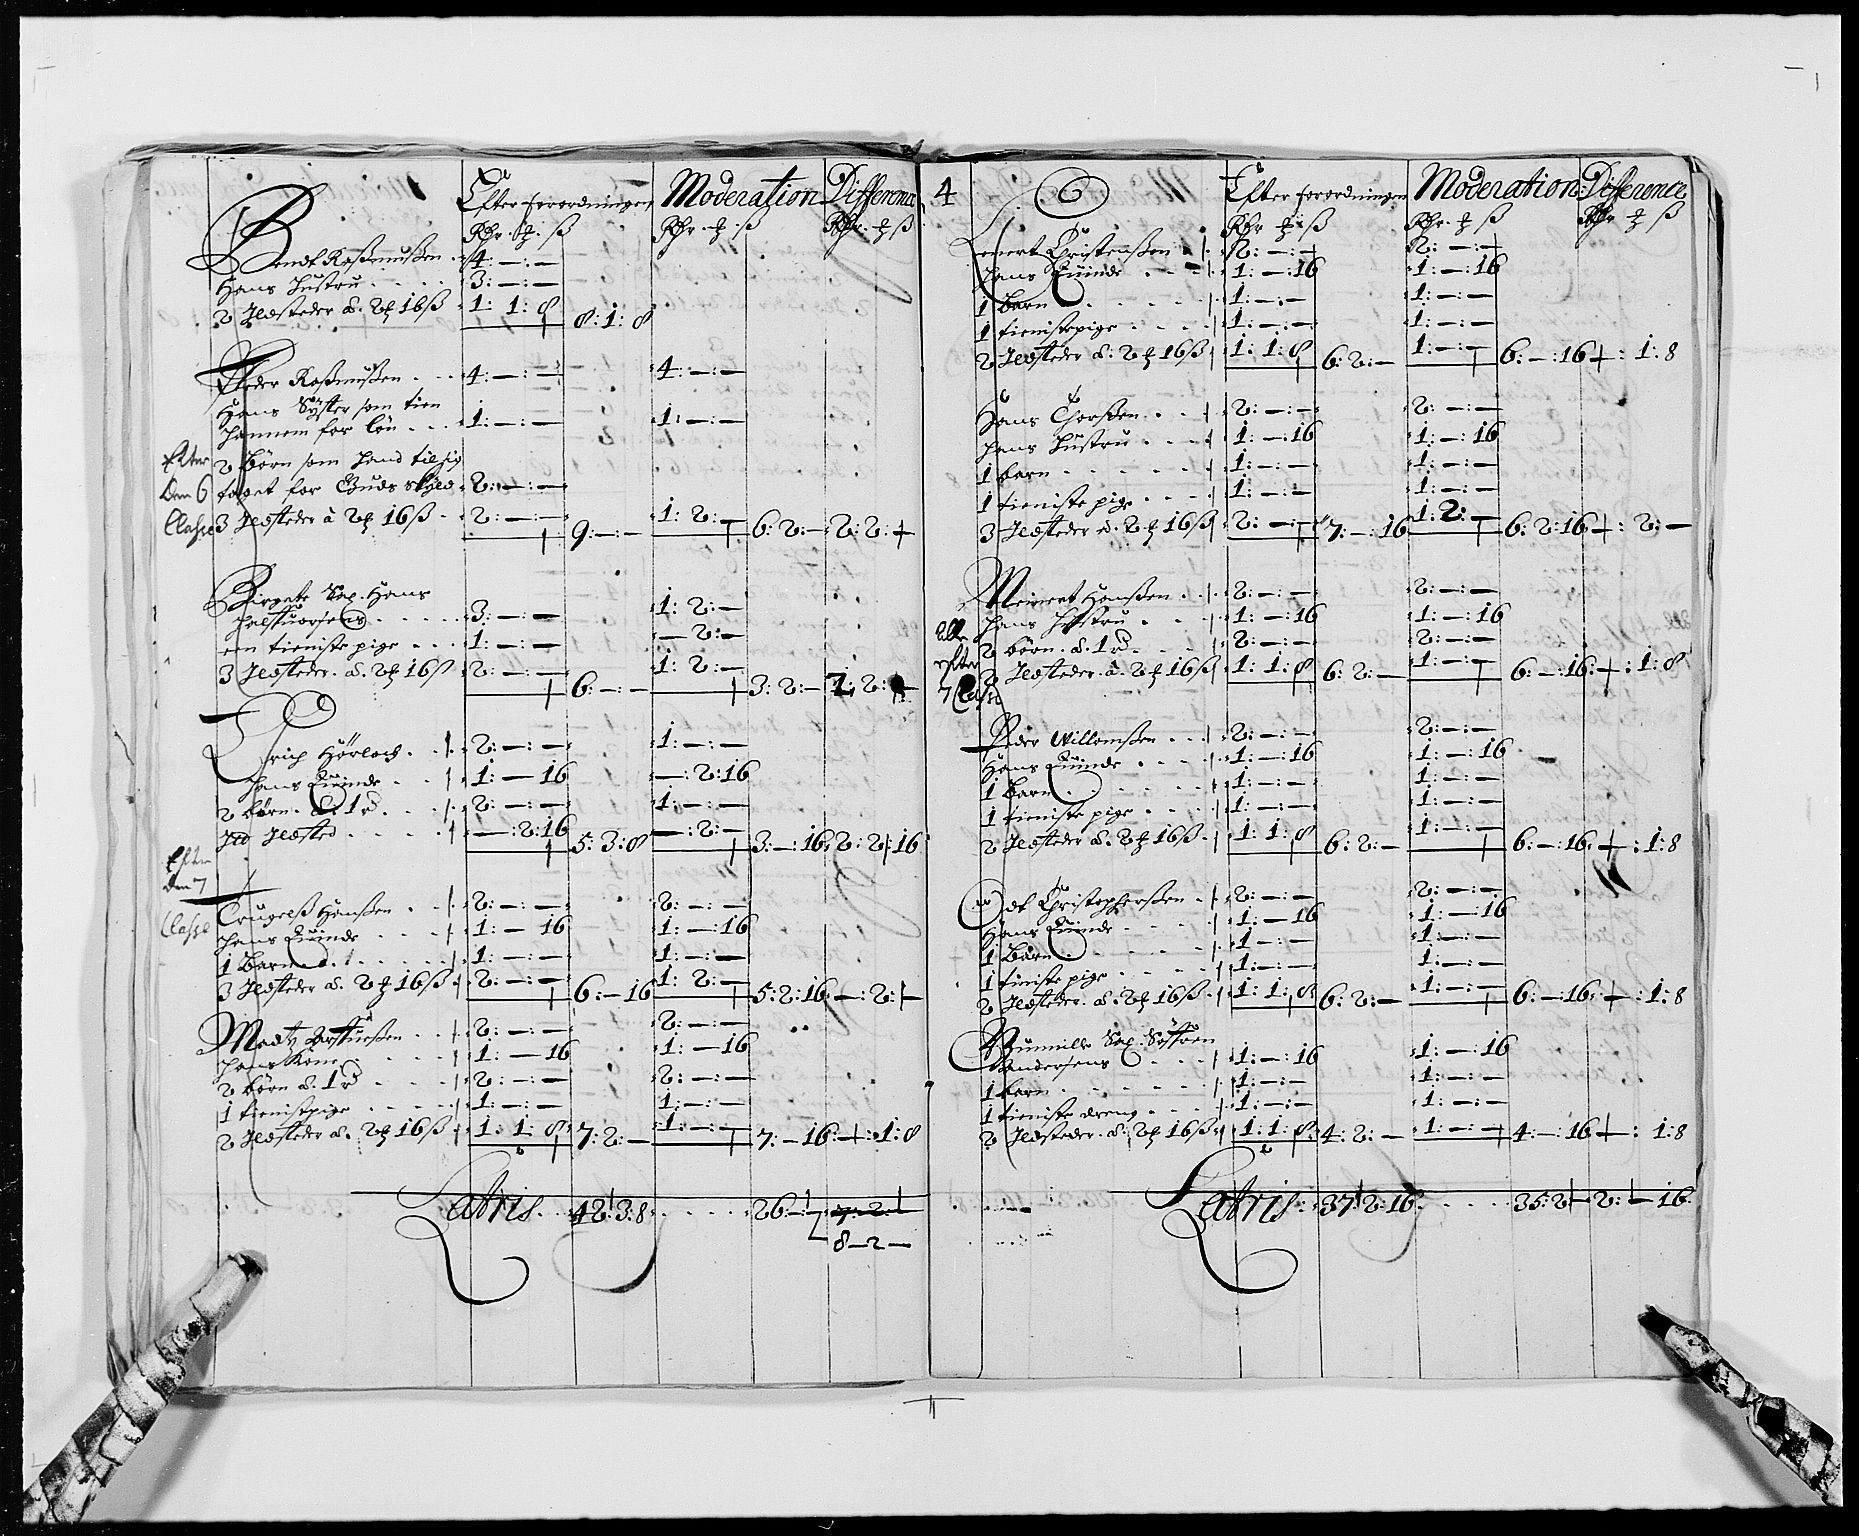 Efter forordningen Moderation Difference
Rdr. ℔. ß Rdr. ℔. ß Rdr. ℔ ß
Bendt Raßmußen 4: — : —
Hans Hustru 3: — : —
2 Ildsteder à 2 ℔ 16 ß 1: 1: 8 8: 1: 8
Peder Raßmußen 4: — : — 4: — : —
Hans Syster som tien
hannem for løn 1: — : — 1: — : —
2 Børn som hand til sig
taget for Guds skyld 2: — : —
Efter
den 6
Classe
3 Ildsteder à 2 ℔ 16 ß 2: — : — 9: — : — 1: 2: — 6: 2: — 2: 2: —
Birgete Sal. Hans
3: — : — 1: 2: —
een tieniste pige 1: — : — — 2: —
3 Ildsteder à 2 ℔ 16 ß 2: — : — 6: — : — 1: 2: — 3: 2: — 2: —
Erich 2: — : — 1: — : —
hans Quinde 1: — 16 — : 2: 16
2 børn à 1 rd 2: — : — 1: — : —
Itt Ildsted — : 2: 16 5: 3: 8 — : 2: — 3: — : 16 2: 2: 16
Efter
den 7
Classe
Trugelß Hanßen 2: — : — 2: — : —
hans Quinde 1: — 16 1: — : 16
1 Barn 1: — : — 1: — : —
3 Ildsteder à 2 ℔ 16 ß 2: — : — 6: — 16 1: 2: — 5: 2: 16 — : 2: —
Madtz 2: — : — 2: — : —
hans Kone 1: — 16 1: — 16
2 børn à 1 rd 2: — : — 2: — : —
1 tienistpige 1: — : — 1: — : —
2 Ildsteder à 2 ℔ 16 ß 1: 1: 8 7: 2: — 1: — : — 7: — 16 — : 1: 8
Latris 42: 3: 8 26: — : — 7: 2: —
8 — 2 —
4
Efter forordningen Moderation Difference
Rdr ℔ ß Rdr. ℔ ß Rdr. ℔ ß
Christenßen 2: — : — 2: — : —
hans Quinde 1: — 16 1: — 16
1 Barn 1: — : — 1: — : —
1 tienistepige 1: — : — 1: — : —
2 Ildsteder à 2 ℔ 16 ß 1: 1: 8 6: 2: — 1: — : — 6: — : 16 — : 1: 8
Hans Thorßen 2: — : — 2: — : —
hans Hustru 1: — 16 1: — : 16
1 barn 1: — : — 1: — : —
1 tieniste pige 1: — : — 1: — : —
3 Ildsteder à 2 ℔ 16 ß 2: — : — 7: — : 16 1: 2: — 6: 2: 16 — : 2: —
Meinert Hanßen 2: — : — 2: — : —
hans Hustru 1: — : 16 1: — : 16
Alle
efter
7 Classe
2 børn à 1 rd 2: — : — 2: — : —
2 Ildsteder à 2 ℔ 16 ß 1: 1: 8 6: 2: — 1: — : — 6: — : 16 — : 1: 8
Peder Willomßen 2: — : — 2: — : —
Hans Quinde 1: — : 16 1: — : 16
1 Barn 1: — : — 1: — : —
1 tieniste pige 1: — : — 1: — : —
2 Ildsteder à 2 ℔ 16 ß 1: 1: 8 6: 2: — 1: — : — 6: — : 16 — : 1: 8
Christopherßen 2: — : — 2: — : —
Hans Quinde 1: — 16 1: — : 16
1 Børn 1: — : — 1: — : —
1 tieniste pige 1: — : — 1: — : —
2 Ildsteder à 2 ℔ 16 ß 1: 1: 8 6: 2: — 1: — : — 6: — : 16 — : 1: 8
Gunnille Sal.
Andersens 1: — : 16 1: — : 16
1 barn 1: — : — 1: — : —
1 tieniste dreng 1: — : — 1: — : —
2 Ildsteder à 2 ℔ 16 ß 1: 1: 8 4: 2: — 1: — : — 4: — : 16 — : 1: 8
Latris 37: 2: 16 35: 2: — 2: — 16